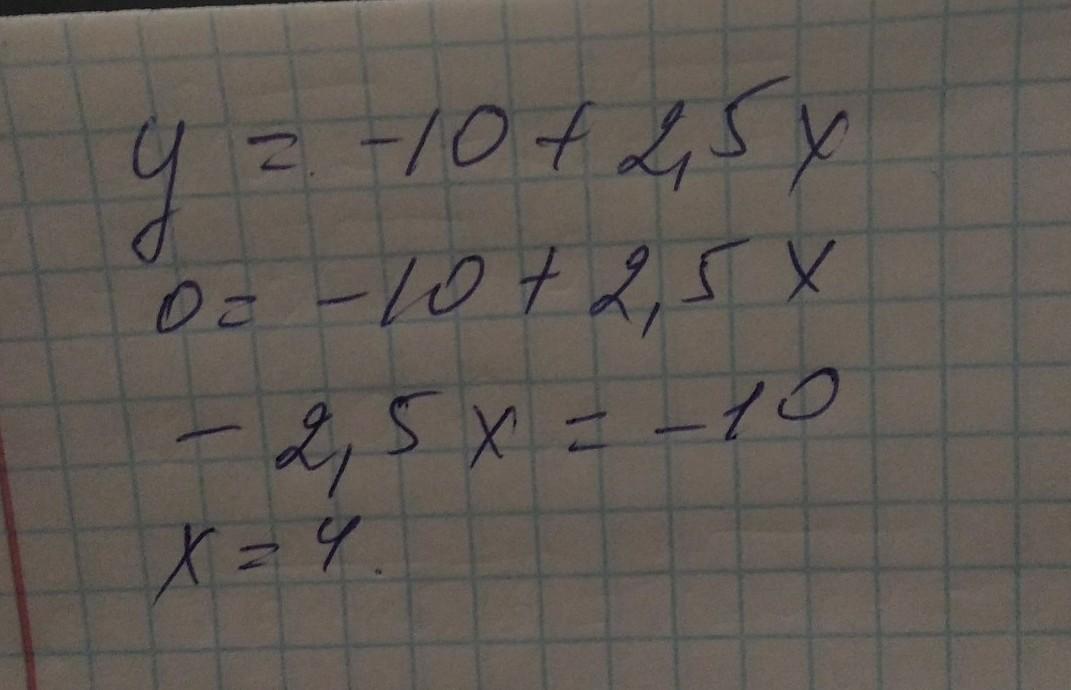 y = -10 + 2,5 x
0 = -10 + 2,5 x
- 2,5 x = -10
x = 4.